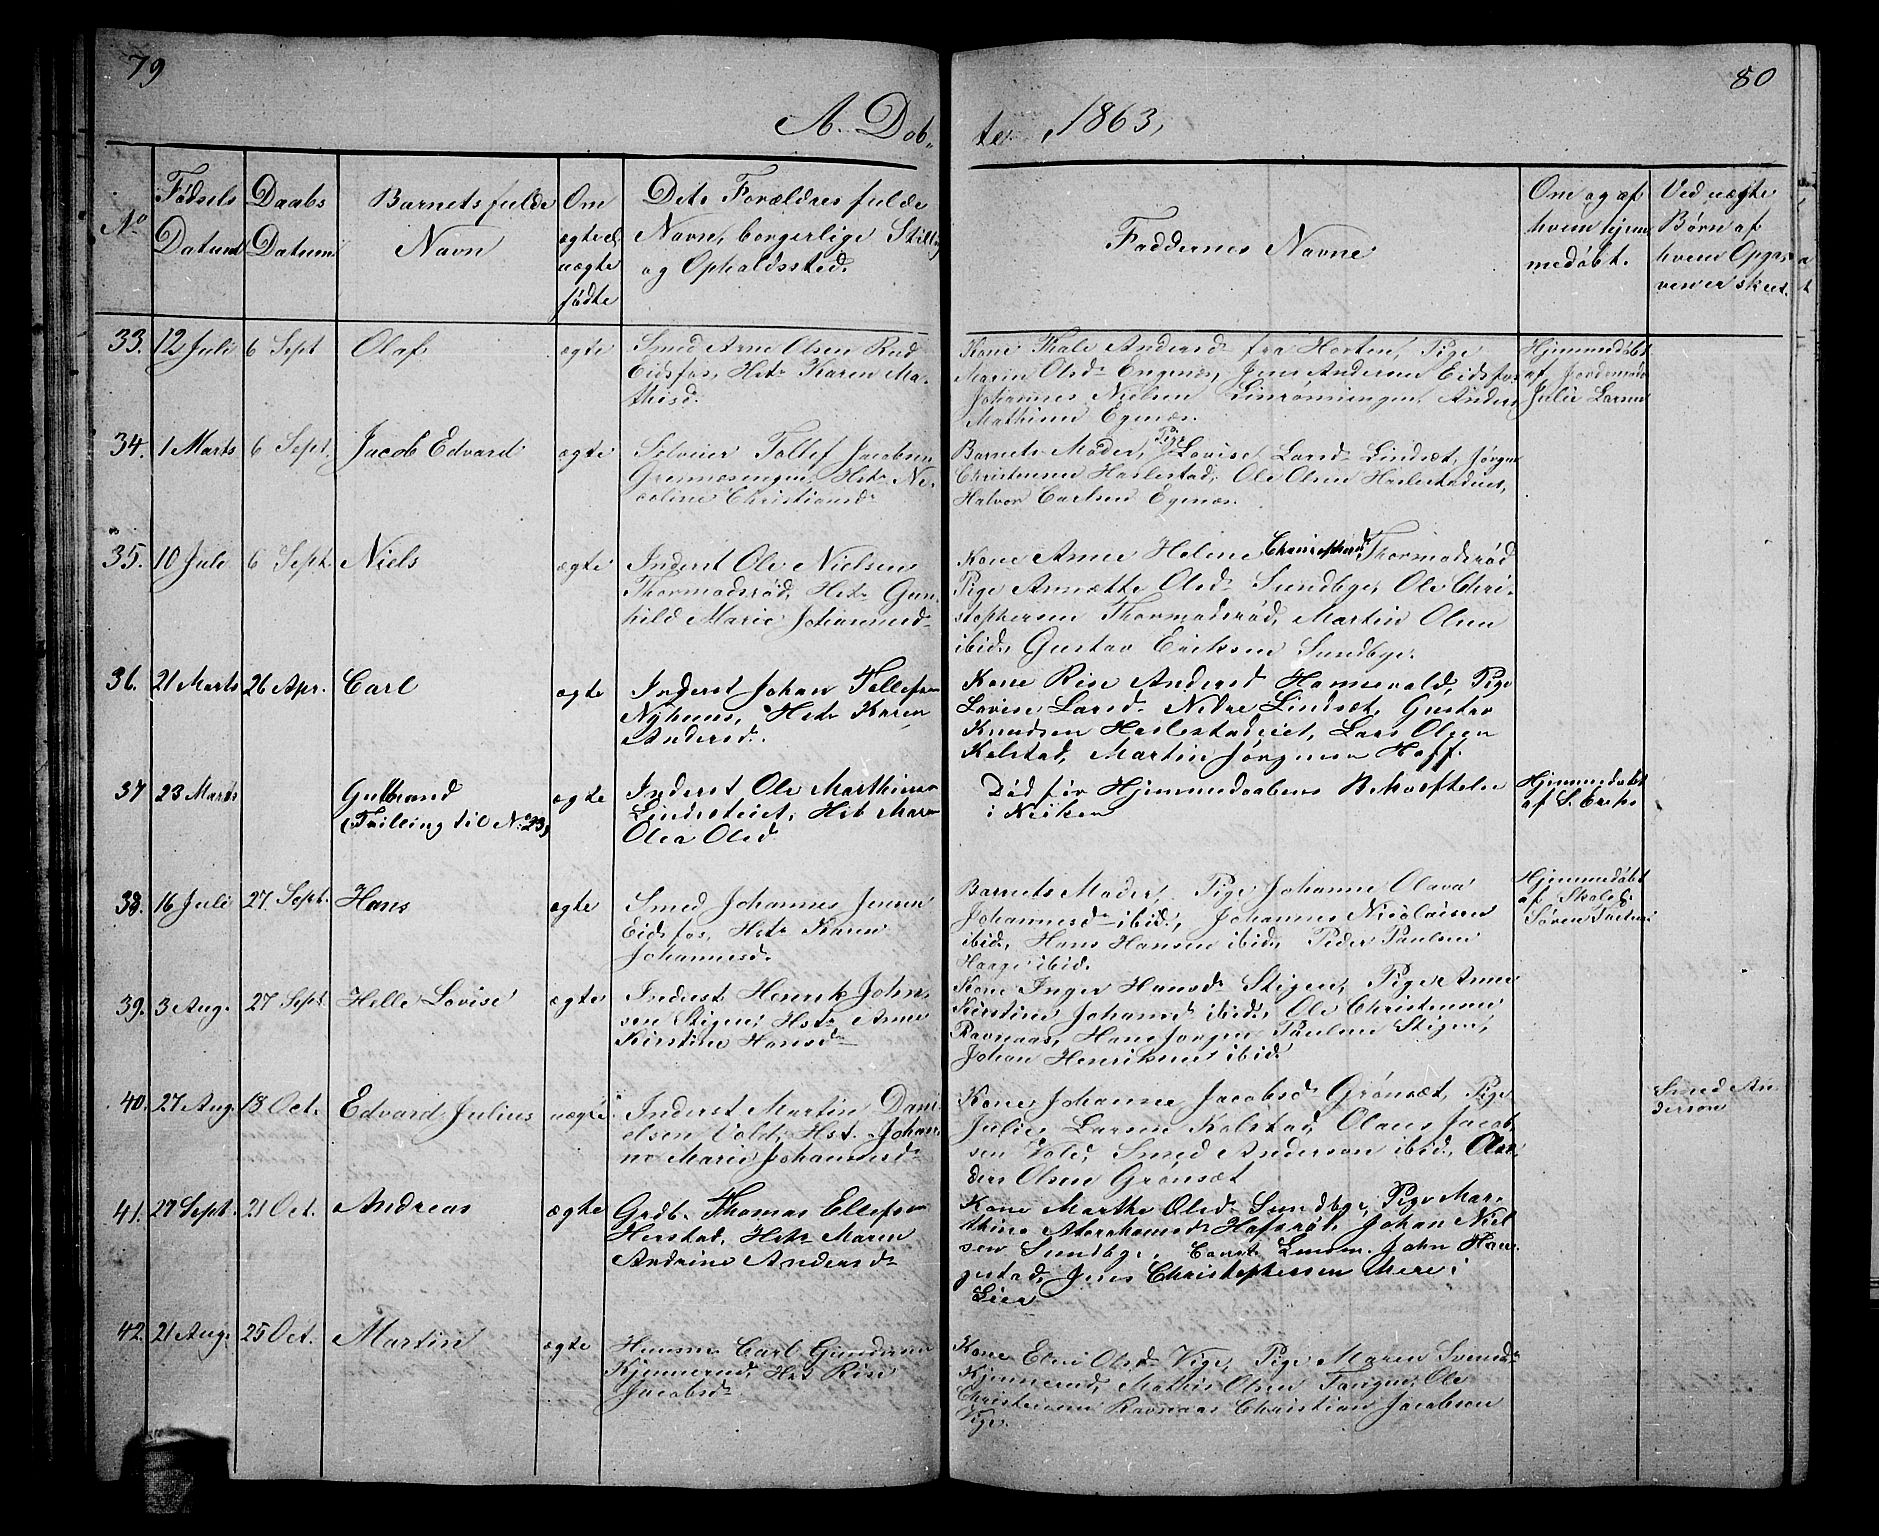 79
80
A. Døb-
te, 1863,
No
Fødsels Datum
Daabs Datum
Barnets fulde Navn
Om ægte el. uægte fødte
Dets Forældres fulde Navn, borgerlige Stilling og Opholdssted.
Faddernes Navne
Om og af hvem hjemmedøbt.
Ved uægte Børn af hvem Opgaven er skeet.
33. 12 Juli 6 Sept Olaf ægte
Smed Arne Olsen Rud
Eidsfos, Hst. Karen Ma-
thisd.
Kone Thale Andersd. fra Horten, Pige
Maria Olsd. Engenæs, Jens Andersen Eidsfos
Johannes Nielsen Linrømingen, Anders
Mathisen Egenæs.
Hjemmedøbt
af Jordemoder
Julie Larsen
34. 1 Marts 6 Sept. Jacob Edvard ægte
Selveier Tollef Jacobsen
Grennesingen, Hst. Ni-
coline Christiansd.
Barnets Moder, Pige Lovise Larsd. Lindsæt, Jørgen
Christensen Haslestad, Ole Olsen Haslestadeiet,
Halvor Carlsen Egenæs.
35. 10 Juli 6 Sept. Niels ægte
Inderst Ole Nielsen
Thormodsrød, Hst. Gun-
hild Marie Johannesd.
Kone Anne Helene Christophersd. Thormodsrød
Pige Annette Olsd. Sundbye, Ole Chri-
stophersen Thormodsrød, Martin Olsen
ibid, Gustav Eriksen Sundbye.
36. 21 Marts 26 Apr. Carl ægte
Inderst Johan Tollefsen
Nyhuus, Hst. Karen
Andersd.
Kone Rise Andersd. Hannevold, Pige
Lovise Larsd. Nedre Lindsæt, Gustav
Knudsen Haslestadeiet, Lars Olsen
Kolstad, Martin Jørgensen Hoff.
37 23 Marts Gulbrand ægte
(Tvilling til No. 23)
Inderst Ole Marthinsen
Lindseteiet, Hst. Maren
Olea Olsd.
Død før Hjemmedaabens Bekræftelse
i Kirken
Hjemmedøbt
af S.
38. 16 Juli 27. Sept. Hans ægte
Smed Johannes Jensen
Eidsfos, Hst. Karen
Johannesd.
Barnets Moder, Pige Johanne Olava
Johannesd. ibid, Johannes Nicolaisen
ibid, Hans Hansen ibid, Peder Paulsen
Haage ibid.
Hjemmedøbt
af Skolel.
Søren
39. 3 Aug. 27 Sept. Helle Lovise ægte
Inderst Henrik John-
sen Stigen, Hst. Anne
Kirstine Hansd.
Kone Inger Hansd. Stigen, Pige Anne
Kirstine Johansd. ibid, Ole Christensen
Ravnaas, Hans Jørgen Paulsen Stigen,
Johan Henriksen ibid.
40. 27 Aug. 18 Oct. Edvard Julius uægte
Inderst Martin Dani-
elsen Vold, Hst. Johan-
ne Marie Johannesd.
Kone Johanne Jacobsd. Grønsæt, Pige
Julie Larsen Kolstad, Olaus Jacob-
sen Vold, Smed Anderson ibid,
Olsen Grønsæt
Smed An-
derson
41. 27 Sept. 21 Oct. Andreas ægte
Grdb. Thomas Ellefsen
Herstad, Hst. Maren
Andrine Andersd.
Kone Marthe Olsd. Sundbye, Pige Mar-
thine Abrahamsd. Hafsrød, Johan Niel-
sen Sundbye, Const. Lensm. John Hau-
gestad, Jens Christophersen Mere i
Lier
42. 21 Aug. 25 Oct. Martin ægte
Huusm. Carl Gundersen
Kjennerud, Hst. Rise
Jacobsd.
Kone Eli Olsd. Vige, Pige Maren Svensd.
Kjennerud, Mathis Olsen Tangen, Ole
Christensen Ravnaas, Christian Jacobsen
Vige.